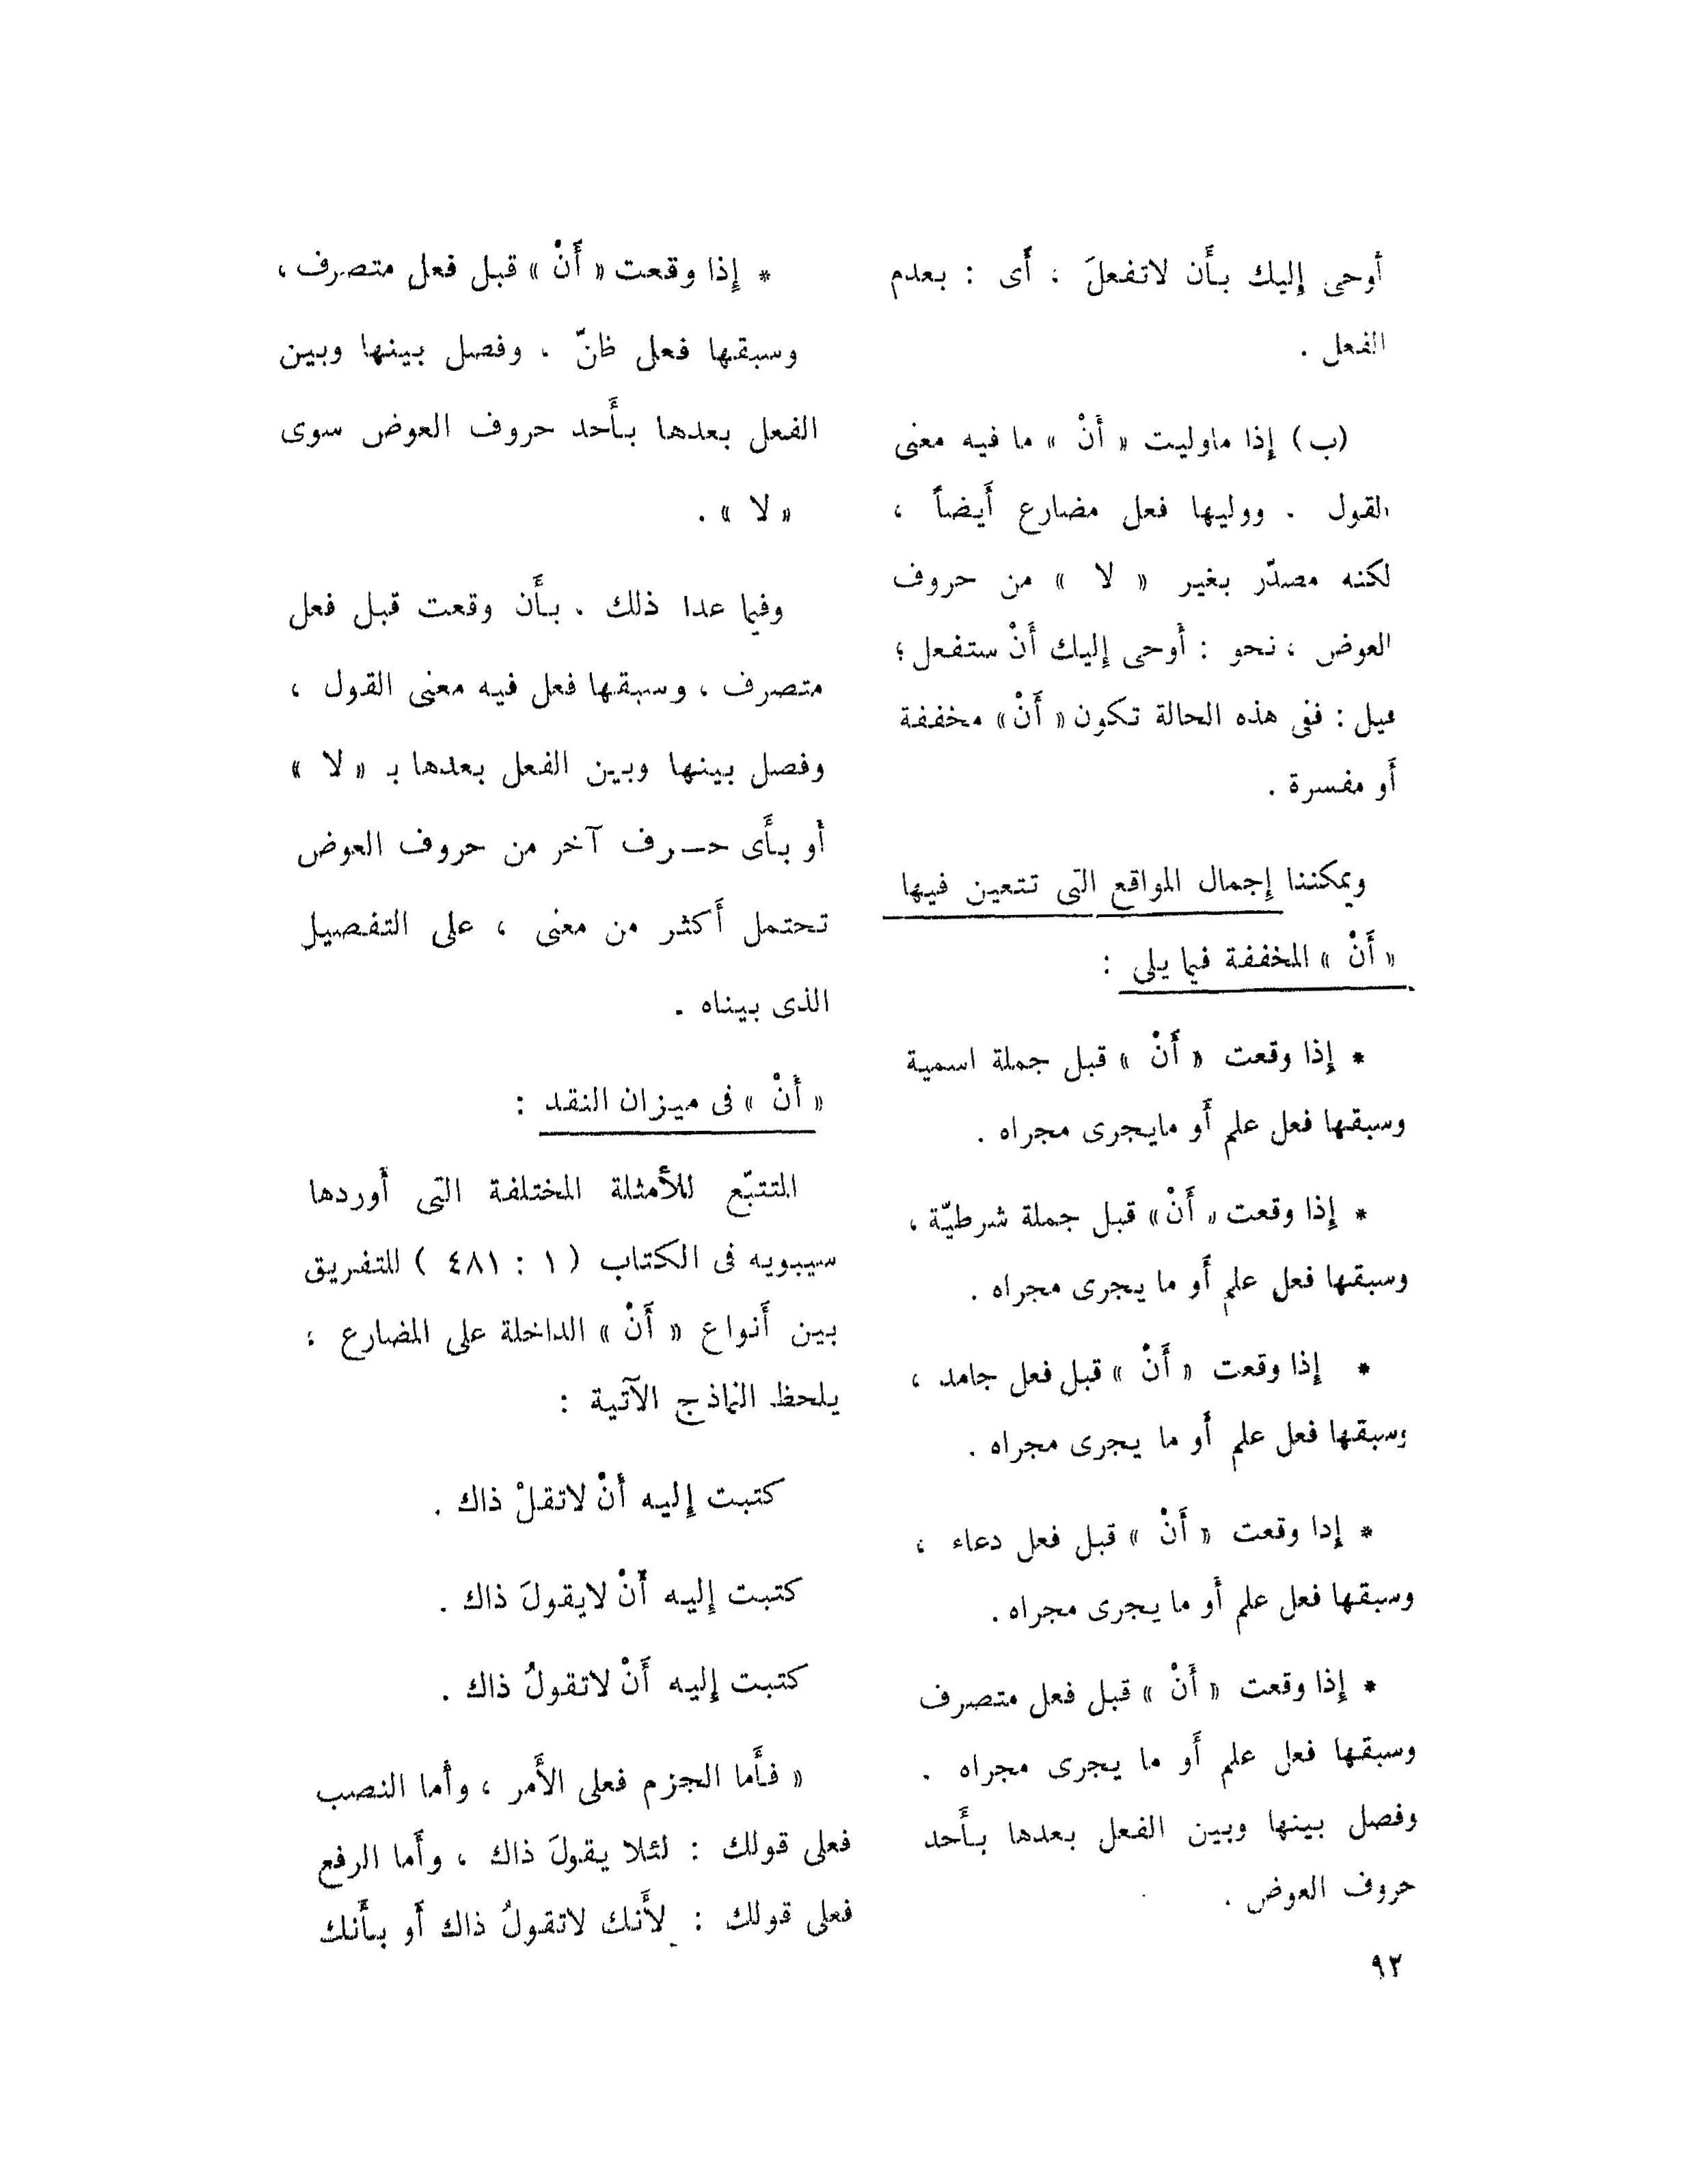 أوحى إليك بأَن لاتفعلَ ، أَى : بعدم
الفعل .
(ب) إذا ماوليت « أَنْ » ما فيه معنى
القول . ووليها فعل مضارع أَيضاً ،
لكنه مصدّر بغير « لا » من حروف
العوض ، نحو : أوحى إليك أَنْ ستفعل ؛
فيل : ففى هذه الحالة تكون « أَنْ » مخففة
أَو مفسرة .
ويمكننا إجمال المواقع التى تتعين فيها
« أَنْ » المخففة فيما يلى :
* إذا وقعت « أَنْ » قبل جملة اسمية
وسبقها فعل علم أَو مايجرى مجراه .
* إذا وقعت « أَنْ » قبل جملة شرطيّة ،
وسبقها فعل علم أَو ما يجرى مجراه .
* إذا وقعت « أَنْ » قبل فعل جامد ،
وسبقها فعل علم أَو ما يجرى مجراه .
* إدا وقعت « أَنْ » قبل فعل دعاء ،
وسبقها فعل علم أَو ما يجرى مجراه .
* إذا وقعت « أَنْ » قبل فعل متصرف
وسبقها فعل علم أَو ما يجرى مجراه .
وفصل بينها وبين الفعل بعدها بأَحد
حروف العوض .
٩٢
* إذا وقعت « أَنْ » قبل فعل متصرف ،
وسبقها فعل ظنّ . وفصل بينها وبين
الفعل بعدها بأَحد حروف العوض سوى
« لا » .
وفيما عدا ذلك . بأَن وقعت قبل فعل
متصرف ، وسبقها فعل فيه معنى القول ،
وفصل بينها وبين الفعل بعدها بـ « لا »
أو بأَى حـرف آخر من حروف العوض
تحتمل أَكثر من معنى ، على التفصيل
الذى بيناه .
« أَنْ » فى ميزان النقد :
المتتبّع للأَمثلة المختلفة التى أَوردها
سيبويه فى الكتاب ( ١ : ٤٨١ ) للتفريق
بين أَنواع « أَنْ » الداخلة على المضارع ؛
يلحظ النماذج الآتية :
كتبت إليه أَنْ لاتقلْ ذاك .
كتبت إليه أَنْ لايقولَ ذاك .
كتبت إليه أَنْ لاتقولُ ذاك .
« فأَما الجزم فعلى الأَمر ، وأَما النصب
فعلى قولك : لئلا يقولَ ذاك ، وأَما الرفع
فعلى قولك : لأَنك لاتقولُ ذاك أَو بأَنك